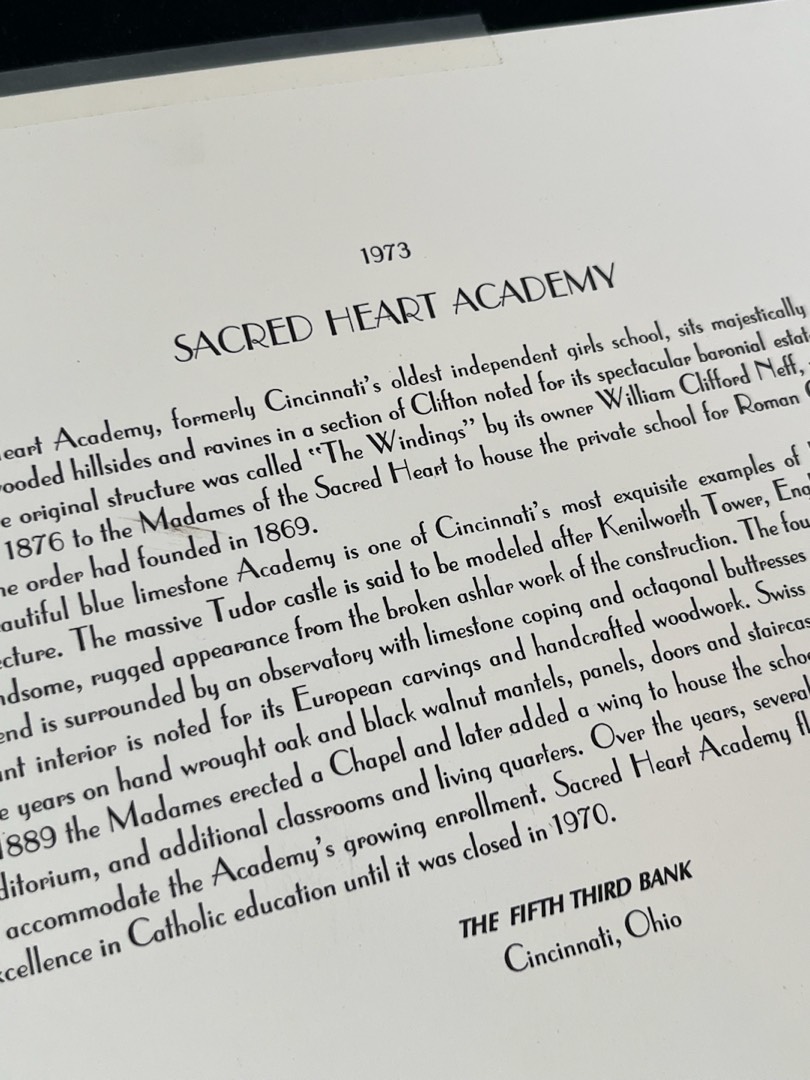 1973
SACRED HEART ACADEMY
Heart Academy, formerly Cincinnati's oldest independent girls school, sits majestically
wooded hillsides and ravines in a section of Clifton noted for its spectacular baronial
e original structure was called "The Windings" by its owner William Clifford Neff,
1876 to the Madames of the Sacred Heart to house the private school for Roman
he order had founded in 1869.
autiful blue limestone Academy is one of Cincinnati's most exquisite examples of
cture. The massive Tudor castle is said to be modeled after Kenilworth Tower, Eng
ndsome, rugged appearance from the broken ashlar work of the construction. The fou
end is surrounded by an observatory with limestone coping and octagonal buttresses
ant interior is noted for its European carvings and handcrafted woodwork. Swiss
e years on hand wrought oak and black walnut mantels, panels, doors and staircas
1889 the Madames erected a Chapel and later added a wing to house the schoo
ditorium, and additional classrooms and living quarters. Over the years, several
accommodate the Academy's growing enrollment. Sacred Heart Academy fl
xcellence in Catholic education until it was closed in 1970.
THE FIFTH THIRD BANK
Cincinnati, Ohio